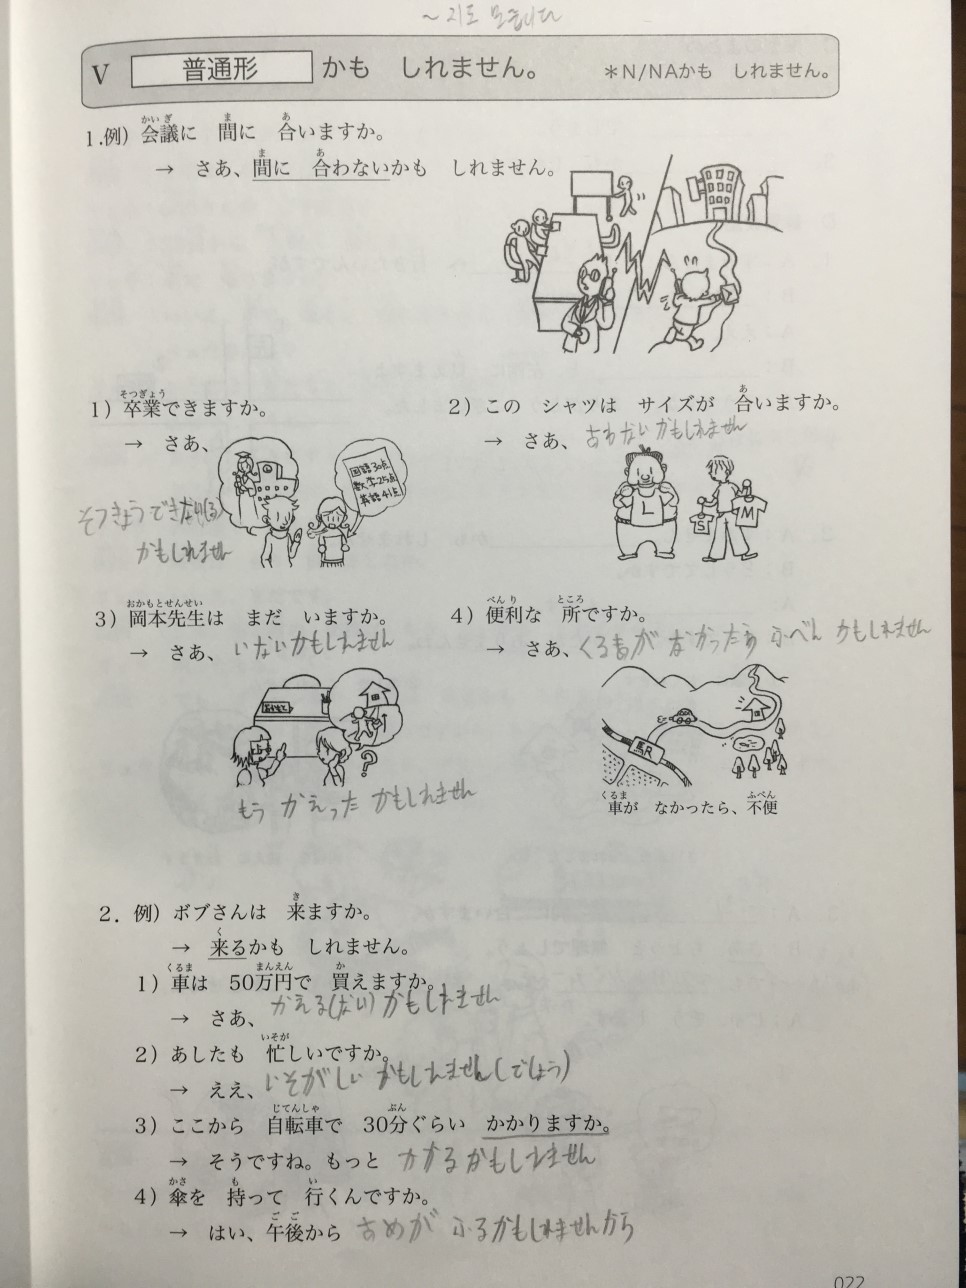 ~지도 모릅니다
V 普通形 かも しれません。 *N/NAかも しれません。
1.例) 会議に 間に 合いますか。
かいぎ ま あ
→ さあ、間に 合わないかも しれません。
ま あ
1) 卒業できますか。
そつぎょう
→ さあ、
国語30点
数学25点
英語41点
そつぎょうできない(る)
かもしれません
2) この シャツは サイズが 合いますか。
あ
→ さあ、あわないかもしれません
L
S
M
3) 岡本先生は まだ いますか。
おかもとせんせい
→ さあ、いないかもしれません
おかもと
?
もう かえった かもしれません
4) 便利な 所ですか。
べんり ところ
→ さあ、くるまが なかったら ふべん かもしれません
駅
車が なかったら、不便
くるま ふべん
2. 例) ボブさんは 来ますか。
き
→ 来るかも しれません。
く
1) 車は 50万円で 買えますか。
くるま まんえん か
→ さあ、かえる(ない)かもしれません
2) あしたも 忙しいですか。
いそが
→ ええ、いそがしい かもしれません(でしょう)
3) ここから 自転車で 30分ぐらい かかりますか。
じてんしゃ ぷん
→ そうですね。もっと かかるかもしれません
4) 傘を 持って 行くんですか。
かさ も い
→ はい、午後から あめが ふるかもしれませんから
ごご
022